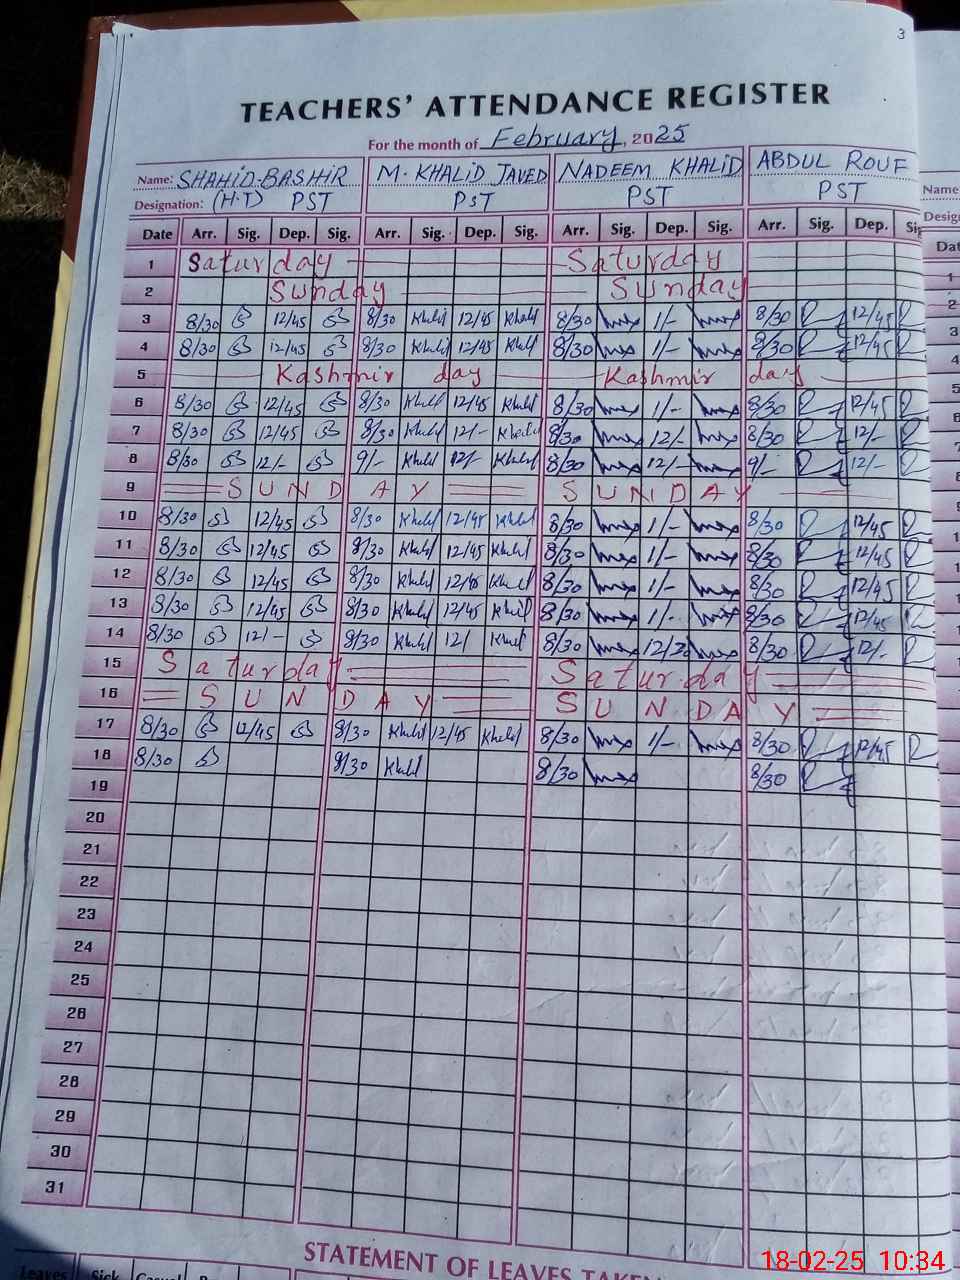 3
TEACHERS' ATTENDANCE REGISTER
For the month of February, 2025
Name: SHAHID BASHIR M. KHALID JAVED NADEEM KHALID ABDUL ROUF Name
Designation: (H.T) PST PST PST PST
Date Arr. Sig. Dep. Sig. Arr. Sig. Dep. Sig. Arr. Sig. Dep. Sig. Arr. Sig. Dep.
1 Saturday Saturday
2 Sunday Sunday
3 8/30 12/45 8/30 Khalid 12/45 Khalid 8/30 1/- 8/30 12/45
4 8/30 12/45 8/30 Khalid 12/45 Khalid 8/30 1/- 8/30 12/45
5 Kashmir day Kashmir day
6 8/30 12/45 8/30 Khalid 12/45 Khalid 8/30 1/- 8/30 12/45
7 8/30 12/45 8/30 Khalid 12/- Khalid 8/30 12/- 8/30 12/-
8 8/30 12/- 9/- Khalid 12/- Khalid 8/30 12/- 9/- 12/-
9 SUNDAY SUNDAY
10 8/30 12/45 8/30 Khalid 12/45 Khalid 8/30 1/- 8/30 12/45
11 8/30 12/45 8/30 Khalid 12/45 Khalid 8/30 1/- 8/30 12/45
12 8/30 12/45 8/30 Khalid 12/45 Khalid 8/30 1/- 8/30 12/45
13 8/30 12/45 8/30 Khalid 12/45 Khalid 8/30 1/- 8/30 12/45
14 8/30 12/- 8/30 Khalid 12/ Khalid 8/30 8/30 12/-
15 Saturday Saturday
16 SUNDAY SUNDAY
17 8/30 12/45 8/30 Khalid 12/45 Khalid 8/30 1/- 8/30 12/45
18 8/30 8/30 Khalid 8/30 8/30
19
20
21
22
23
24
25
26
27
28
29
30
31
STATEMENT OF LEAVES TAKEN
Leaves Sick Casual
18-02-25 10:34